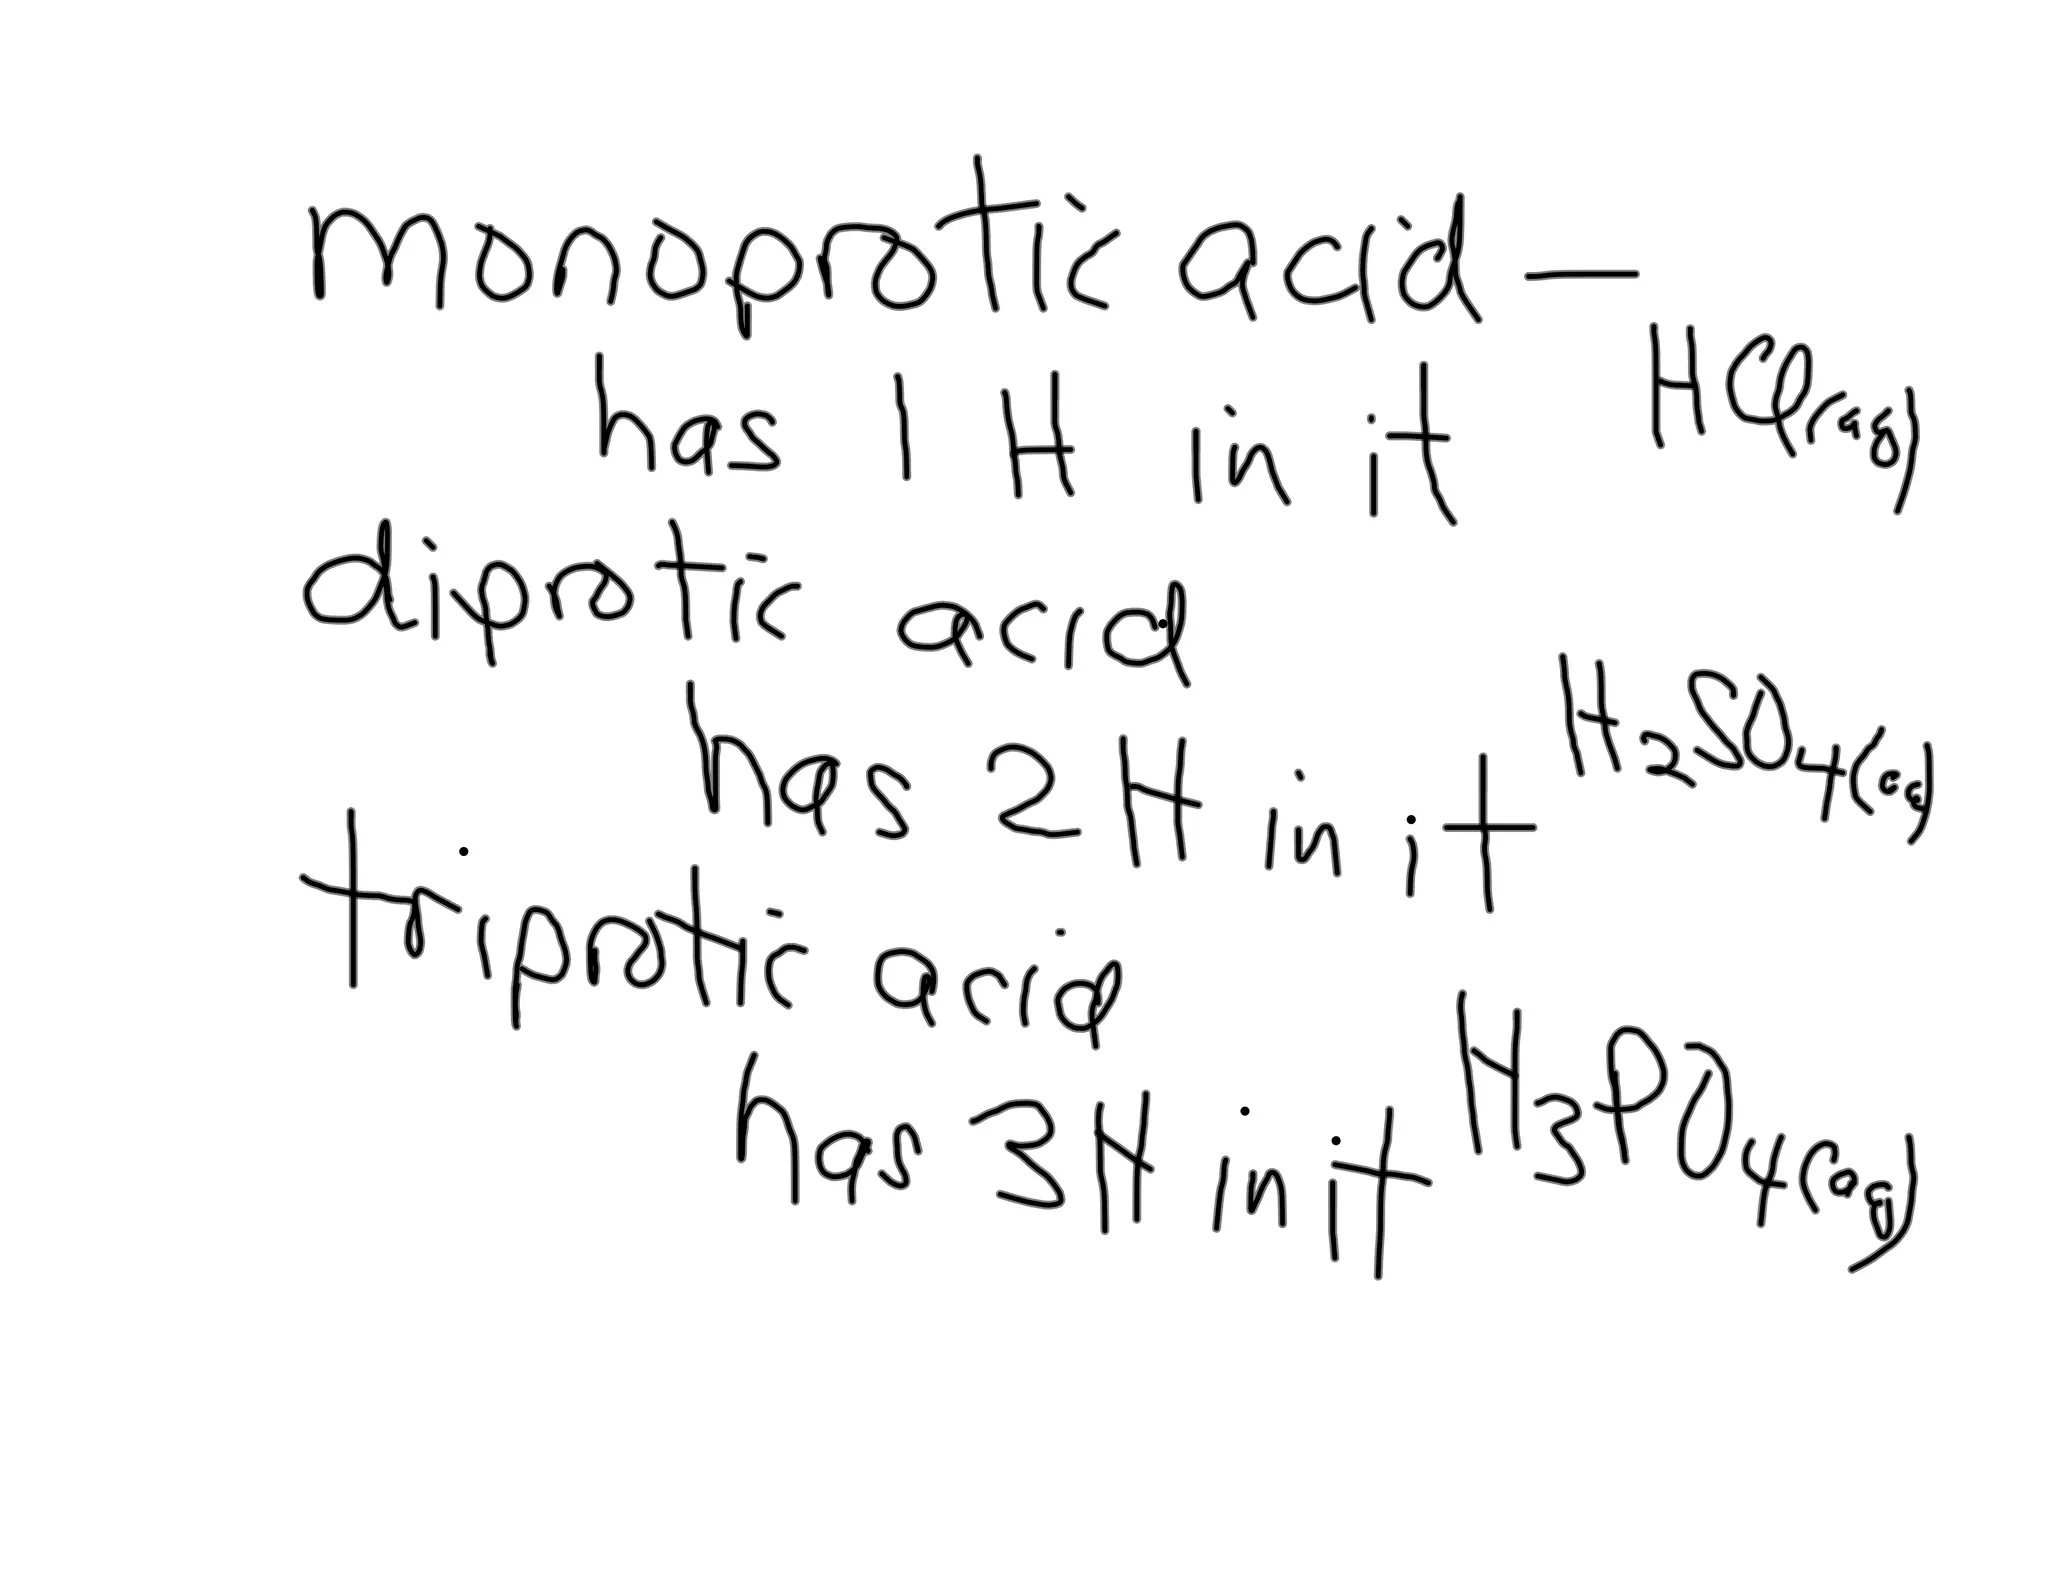 monoprotic acid —
has 1 H in it HCl(aq)
diprotic acid
has 2H in it H₂SO₄(aq)
triprotic acid
has 3H in it H₃PO₄(aq)